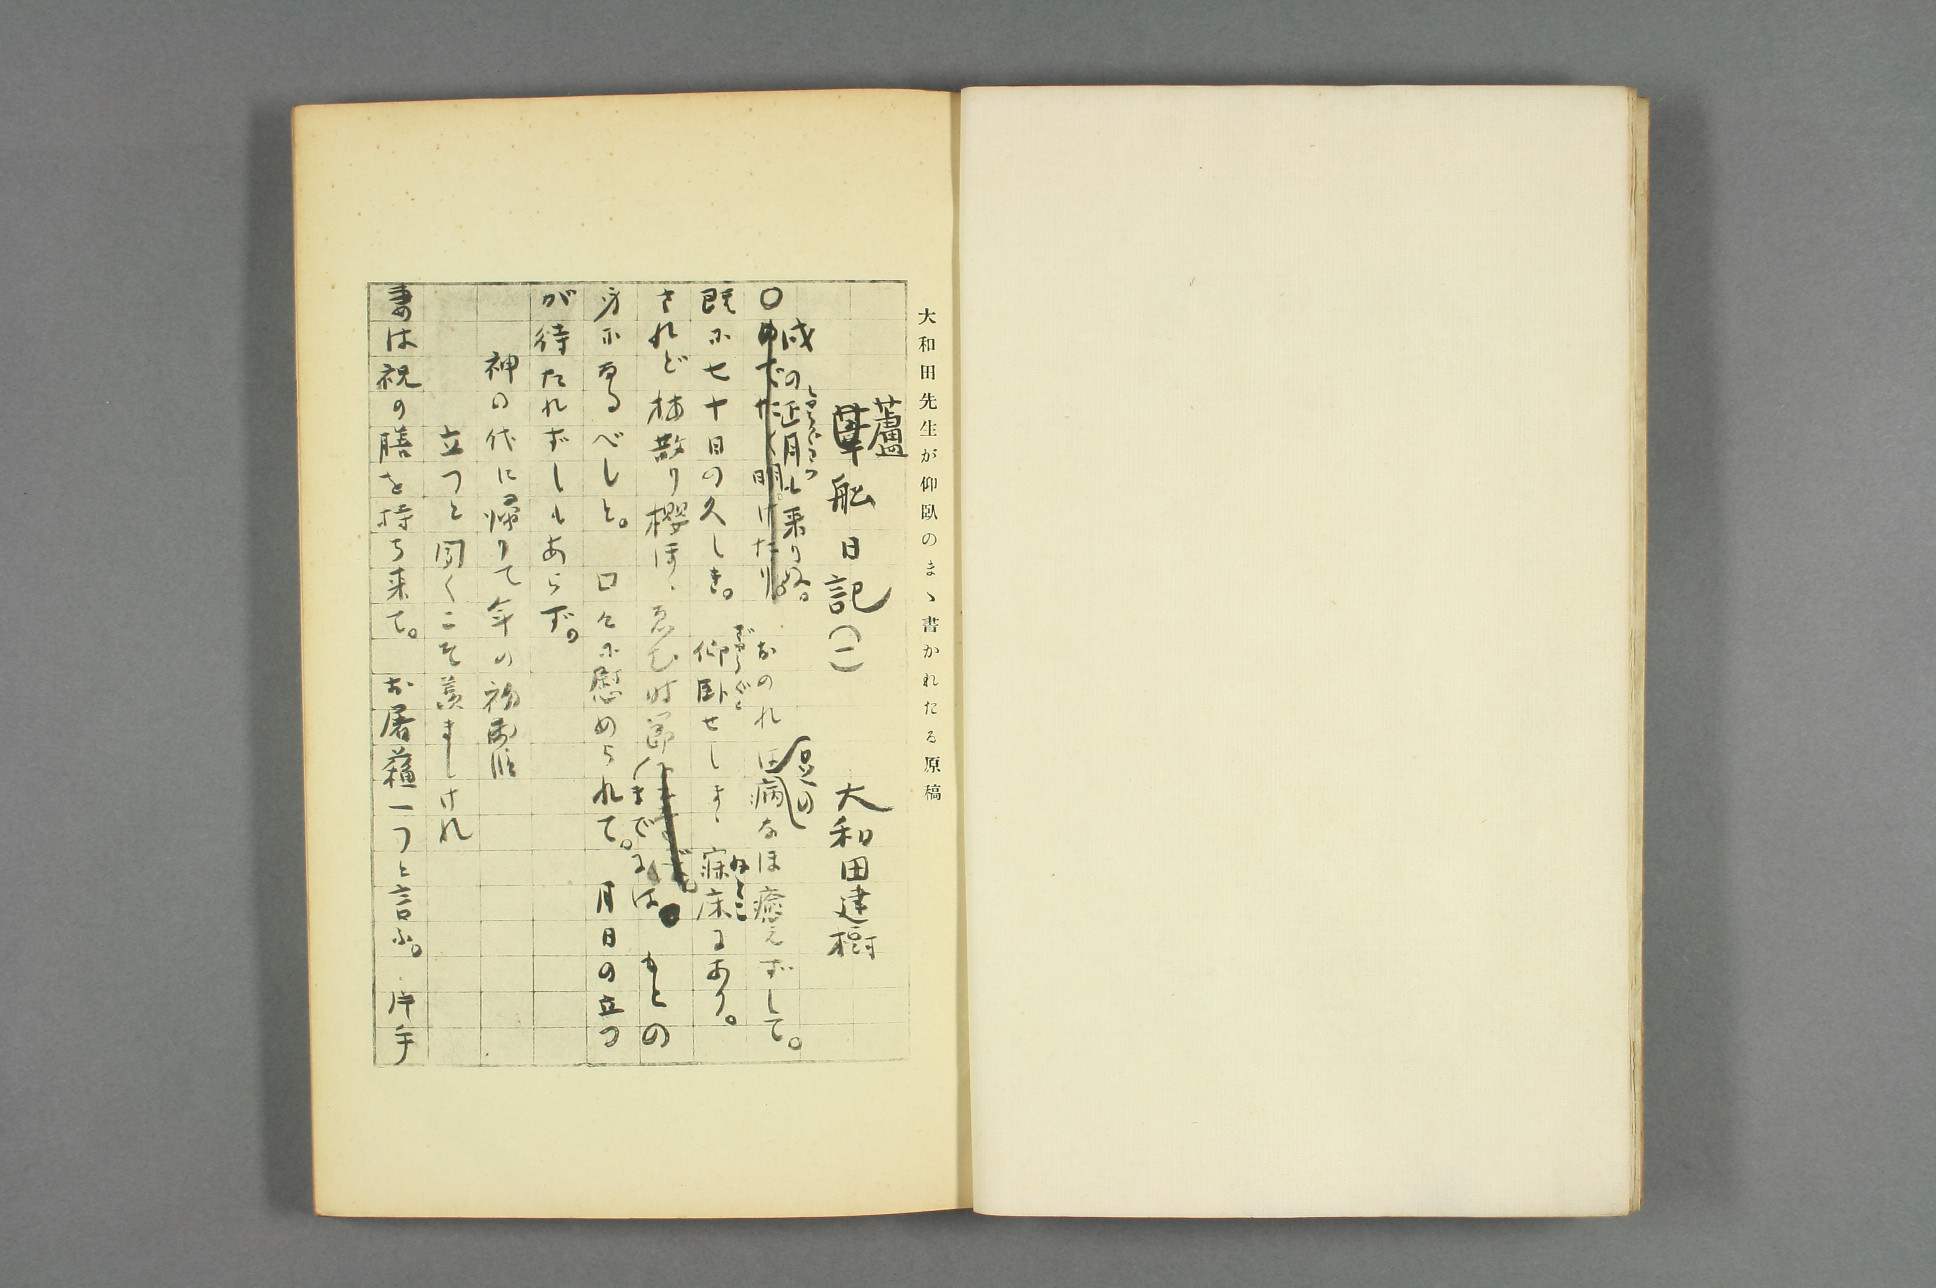 大和田先生が仰臥のまゝ書かれたる原稿
蘆
船日記(一)　大和田建樹
戌の正月も来りぬ。
しやうぐわつ
○めでたく明けたり。おのれは病なほ癒えずして。
足の
既に七十日の久しき。仰臥せしまゝ寐床にあり。
ねどこ
されど梅散り櫻ほゝゑむ時節
までには。もとの
身になるべしと。口々に慰められて。月日の立つ
が待たれずしもあらず。
神の代に帰りて年の初
立つと聞くこそ羨ましけれ
妻は祝の膳を持ち来て。お屠蘇一つと言ふ。片手